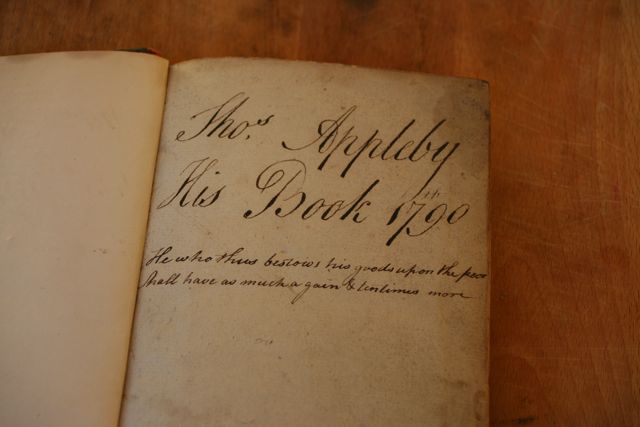 Thoˢ. Appleby
His Book 17th90
He who thus bestows his goods upon the poor
shall have as much again & ten times more